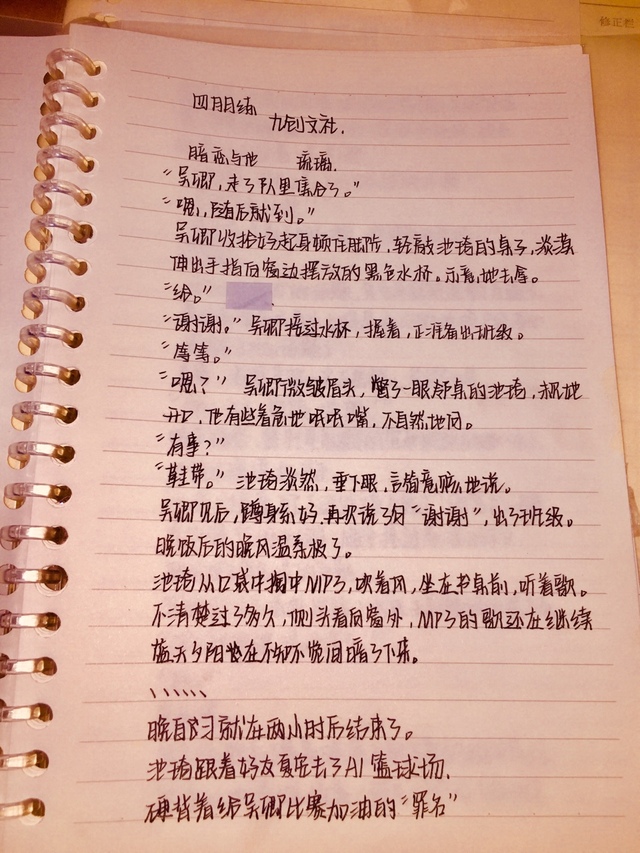 四月月练
九创文社.
暗恋与他 琉璃.
“吴卿,走了队里集合了。”
“嗯,随后就到。”
吴卿收拾好起身顿住脚,轻敲池琦的桌子,淡漠
伸出手指向窗边摆放的黑色水杯。示意她去拿。
“给。”
“谢谢。”吴卿接过水杯,握着,正准备出班级。
“等等。”
“嗯?”吴卿微皱眉头,瞥了一眼邻桌的池琦,机地
开口,他有些着急地抿抿嘴,不自然地问。
“有事?”
“鞋带。”池琦淡然,垂下眼,言简意赅地说。
吴卿见后,蹲身系好,再次说了句“谢谢”,出了班级。
晚饭后的晚风温柔极了。
池琦从口袋中掏中MP3,吹着风,坐在书桌前,听着歌。
不清楚过了多久,侧头看向窗外,MP3的歌还在继续
蓝天夕阳也在不知不觉间暗了下来。
、、、、、、
晚自习就在两小时后结束了。
池琦跟着好友夏安去了A1篮球场.
硬背着给吴卿比赛加油的“罪名”